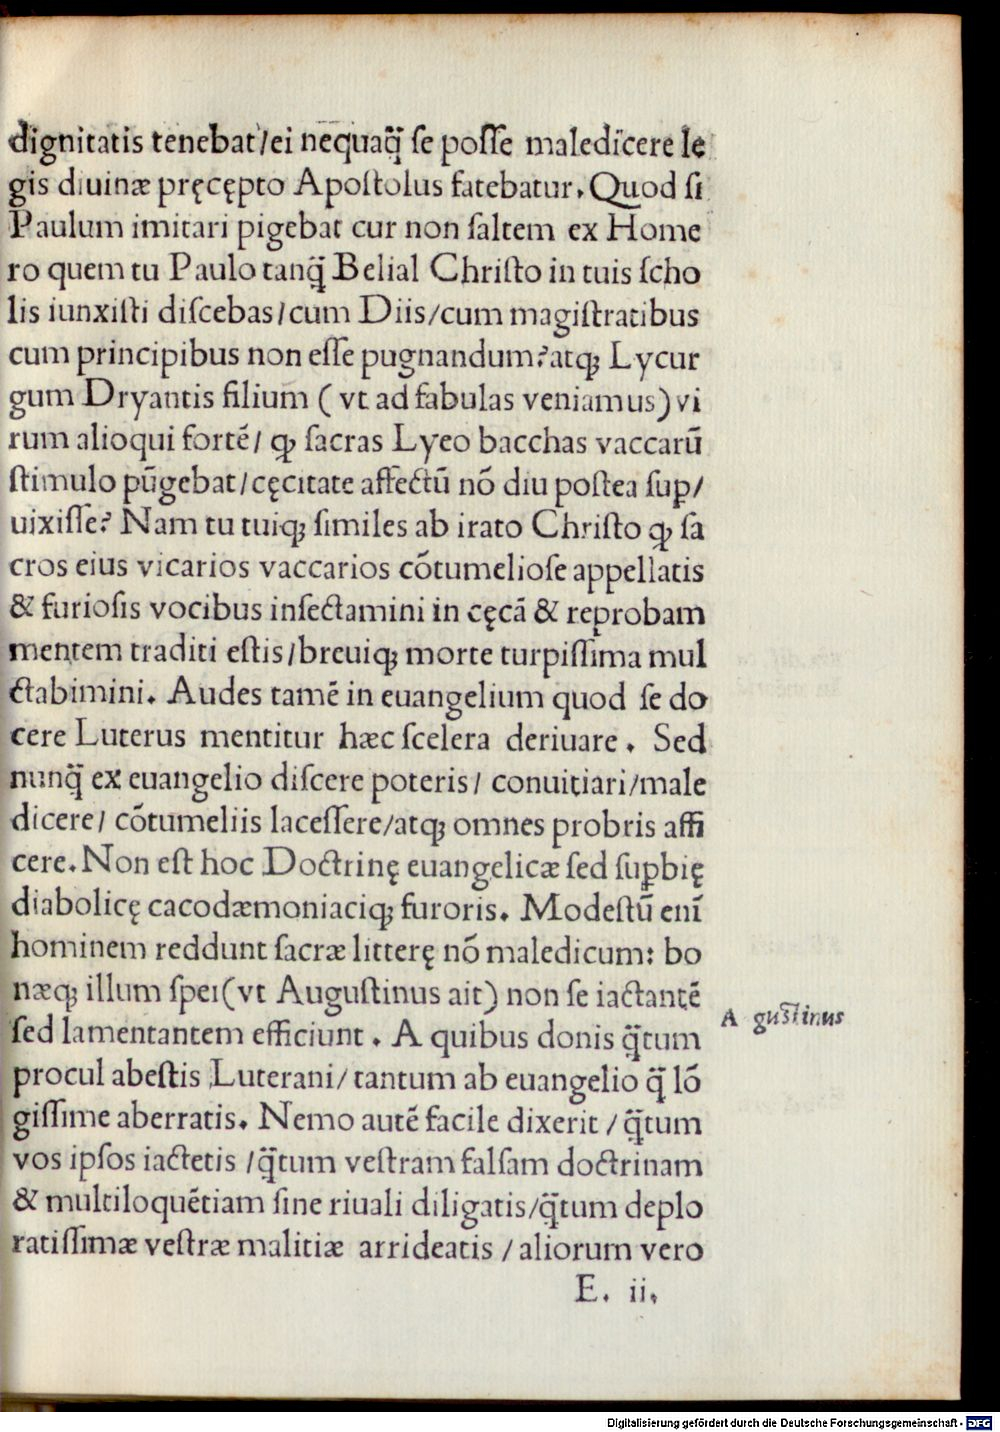 dignitatis tenebat/ei nequaq̃ ſe poſſe maledicere le
gis diuinæ pręcępto Apoſtolus fatebatur. Quod ſi
Paulum imitari pigebat cur non ſaltem ex Home
ro quem tu Paulo tanq̃ Belial Chriſto in tuis ſcho
lis iunxiſti diſcebas/cum Diis/cum magiſtratibus
cum principibus non eſſe pugnandum?atq; Lycur
gum Dryantis filium ( vt ad fabulas veniamus) vi
rum alioqui fortē/ ꝙ ſacras Lyeo bacchas vaccarū
ſtimulo pūgebat/cęcitate affectū nō diu poſtea ſuꝑ/
uixiſſe? Nam tu tuiq; ſimiles ab irato Chriſto ꝙ ſa
cros eius vicarios vaccarios cōtumelioſe appellatis
& furioſis vocibus inſectamini in cęcā & reprobam
mentem traditi eſtis/breuiq; morte turpiſſima mul
ctabimini. Audes tamē in euangelium quod ſe do
cere Luterus mentitur hæc ſcelera deriuare. Sed
nunq̃ ex euangelio diſcere poteris/ conuitiari/male
dicere/ cōtumeliis laceſſere/atq; omnes probris affi
cere. Non eſt hoc Doctrinę euangelicæ ſed ſuꝑbię
diabolicę cacodæmoniaciq; furoris. Modeſtū enī
hominem reddunt ſacræ litterę nō maledicum: bo
næq; illum ſpei(vt Auguſtinus ait) non ſe iactantē
ſed lamentantem efficiunt. A quibus donis q̃tum
procul abeſtis Luterani/ tantum ab euangelio q̃ lō
giſſime aberratis. Nemo autē facile dixerit / q̃tum
vos ipſos iactetis /q̃tum veſtram falſam doctrinam
& multiloquētiam ſine riuali diligatis/q̃tum deplo
ratiſſimæ veſtræ malitiæ arrideatis /aliorum vero
A guſtinus
E. ii.
Digitalisierung gefördert durch die Deutsche Forschungsgemeinschaft - DFG